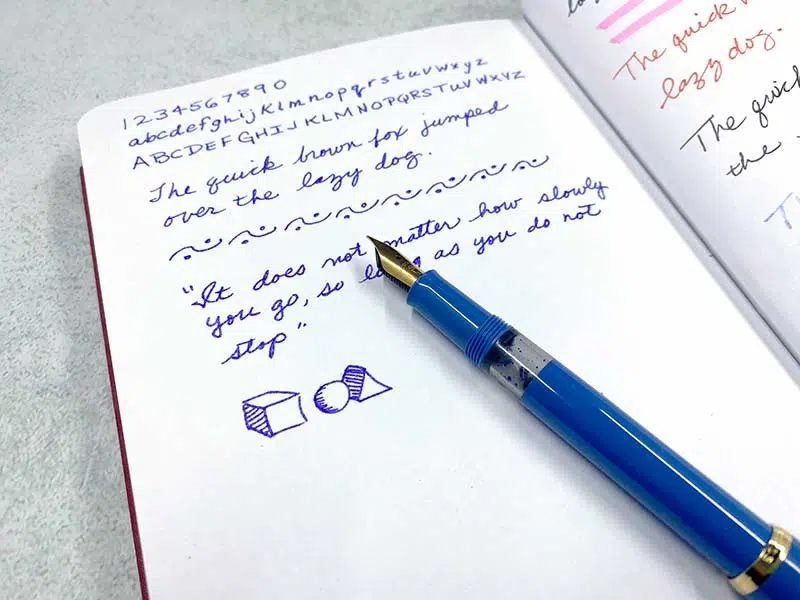 1 2 3 4 5 6 7 8 9 0
abcdefghijklmnopqrstuvwxyz
ABCDEFGHIJKLMNOPQRSTUVWXYZ
The quick brown fox jumped
over the lazy dog.
"It does not matter how slowly
you go, so long as you do not
stop"
The quick
lazy dog.
The quick
the